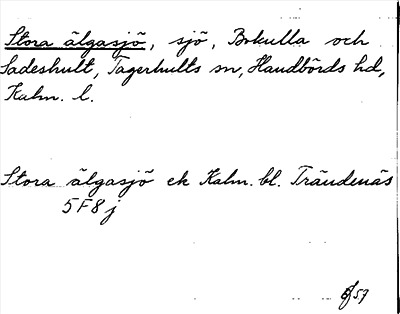 Stora älgasjö, sjö, Bokulla och
Sadeshult, Fagerhults sn, Handbörds hd,
Kalm. l.
Stora älgasjö ek Kalm. bl. Trändenäs
5F8j
57